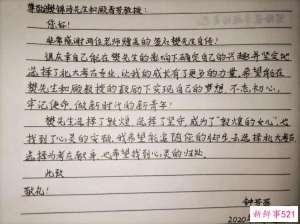 尊敬的樊锦诗先生和顾春芳教授:
您好!
非常感谢两位老师赠送的签名樊先生自传!
很庆幸自己能在樊先生的影响下确定自己的兴趣并坚定地
选择了北大考古专业,让我的成长有了更多的力量,希望能在
樊先生和顾教授的鼓励下实现自己的梦想,不忘初心,
牢记使命,做新时代的新青年!
樊先生选择了敦煌,选择了坚守,成为了"敦煌的女儿",也
找到了心灵的安顿,我希望能追随您的脚步去选择北大考古,
选择为考古献身,也希望找到心灵的归处。
此致
敬礼!
钟芳蓉
2020
新鲜事521